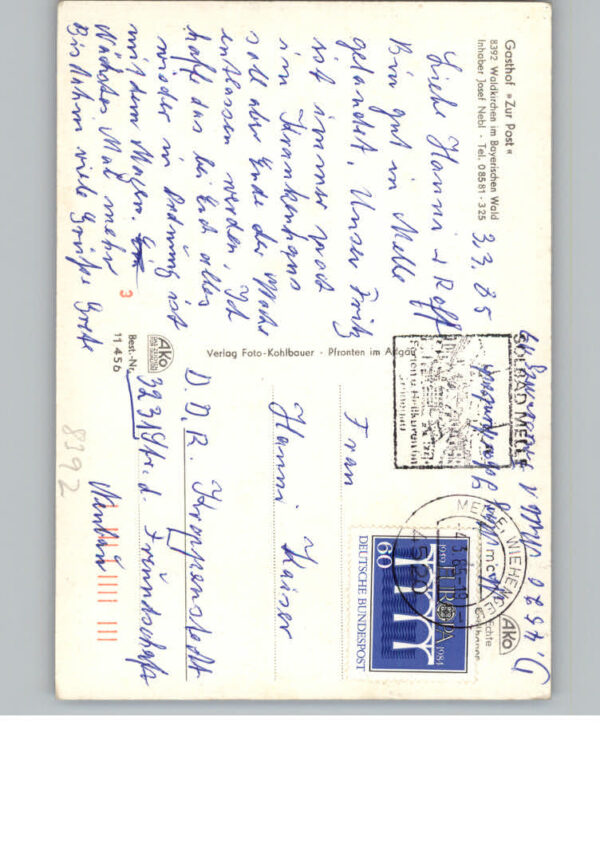 Gasthof »Zur Post«
8392 Waldkirchen im Bayerischen Wald
Inhaber Josef Nebl · Tel. 08581-325
3.3.85
Liebe Hanni u Rolf
Bin gut in Melle
gelandet. Unser Fritz
ist immer noch
im Krankenhaus
soll aber Ende der Woche
entlassen werden. Ich
hoffe das bei Euch alles
wieder in Ordnung ist
mit dem Magen.
Nächstes Mal mehr
Bis dahin viele Grüße Grete
Verlag Foto-Kohlbauer · Pfronten im Allgäu
Ako
Best.-Nr.
11 456
3
SOLBAD MELLE
MELLE, WIEHENGEB
4520
DEUTSCHE BUNDESPOST
60
EUROPA
1959 1984
Ako
Echte
D. 4520 Melle
Frau
Hanni Kaiser
D.D.R. Kroppenstedt
3231 Str. d. Freundschaft
8392